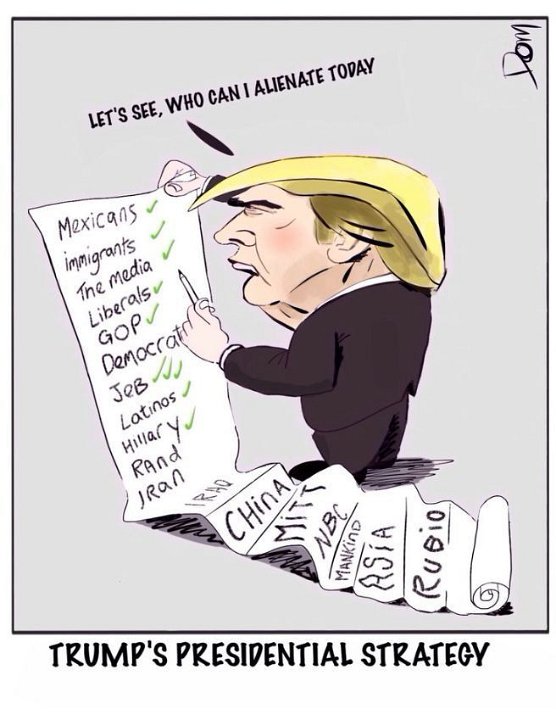 Dom
LET'S SEE, WHO CAN I ALIENATE TODAY
Mexicans
immigrants
The media
Liberals
GOP
Democrat
JeB
Latinos
Hillary
RAnd
IRan
IRAQ
CHinA
MiTT
NBC
MANKiND
ASiA
RUBiO
TRUMP'S PRESIDENTIAL STRATEGY